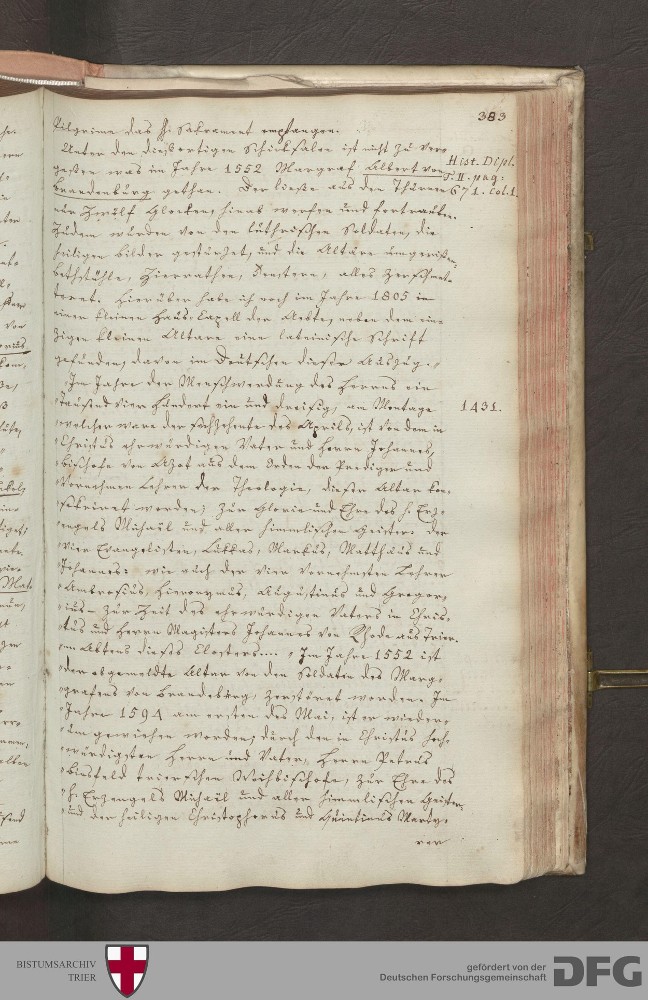 383
Pilgrime das H. Sakrament empfangen.
Unter den diesortigen Schicksalen ist nicht zu ver-
gessen was im Jahre 1552 Margraf Albert von
Brandenburg gethan. Der ließe aus den Thürnen
nur zwölf Glocken, hinab werfen und fortrauben.
Zudem wurden von den luthrischen Soldaten, die
heiligen bilder gestürzet, und die Altäre umgerissen,
bethstühle, Zierrathen, Fenstern, alles zerschmet-
tert. Hierüber habe ich noch im Jahre 1805 in
einer kleinen Haus-Capell der Aebte, neben dem ein-
zigen kleinen Altare eine lateinische Schrift
gefunden, davon im Deutschen dieser Auszug.
Hist. Dipl.
T. II. pag:
671. col:1.
"Im Jahre der Menschwerdung des Herrns ein
"tausend vier hundert ein und dreisig, am Montage
1431.
"welcher ware der sechzehente des Aprils, ist von dem in
"Christus ehrwürdigen Vater und Herrn Johannes,
"bischofe von Azot aus dem Orden der Prediger und
"Vornehmen Lehrer der Theologie, dieser Altar kon-
"sekriret worden; zur Glorie und Ehre des h. Erz-
"engels Michaël und aller himmlischen Geister: der
"vier Evangelisten, Lukkas, Markus, Matthäus und
"Johannes: wie auch der vier Vornehmsten Lehrer
"Ambrosius, Hieronymus, Augustinus und Gregor-
"ius – zur Zeit des ehrwürdigen Vaters in Chris-
"tus und Herrn Magisters Johannes von Rhode aus Trier
"en Abtens dieses Closters.... "Im Jahre 1552 ist
"der obgemeldte Altar von den Soldaten des Marg-
"grafens von Brandeburg, zerstöret worden. Im
"Jahre 1594 am ersten des Mai, ist er wieder-
"um geweihen worden, durch den in Christus hoch-
"würdigsten Herrn und Vater, Herrn Petrus
"binsfeld trierschen Weihbischofe, zur Ehre des
"h. Erzengels Michaël und aller himmlischen Geister
"und der heiligen Christophorus und Quintinus Marty-
rer
BISTUMSARCHIV
TRIER
gefördert von der
Deutschen Forschungsgemeinschaft
DFG